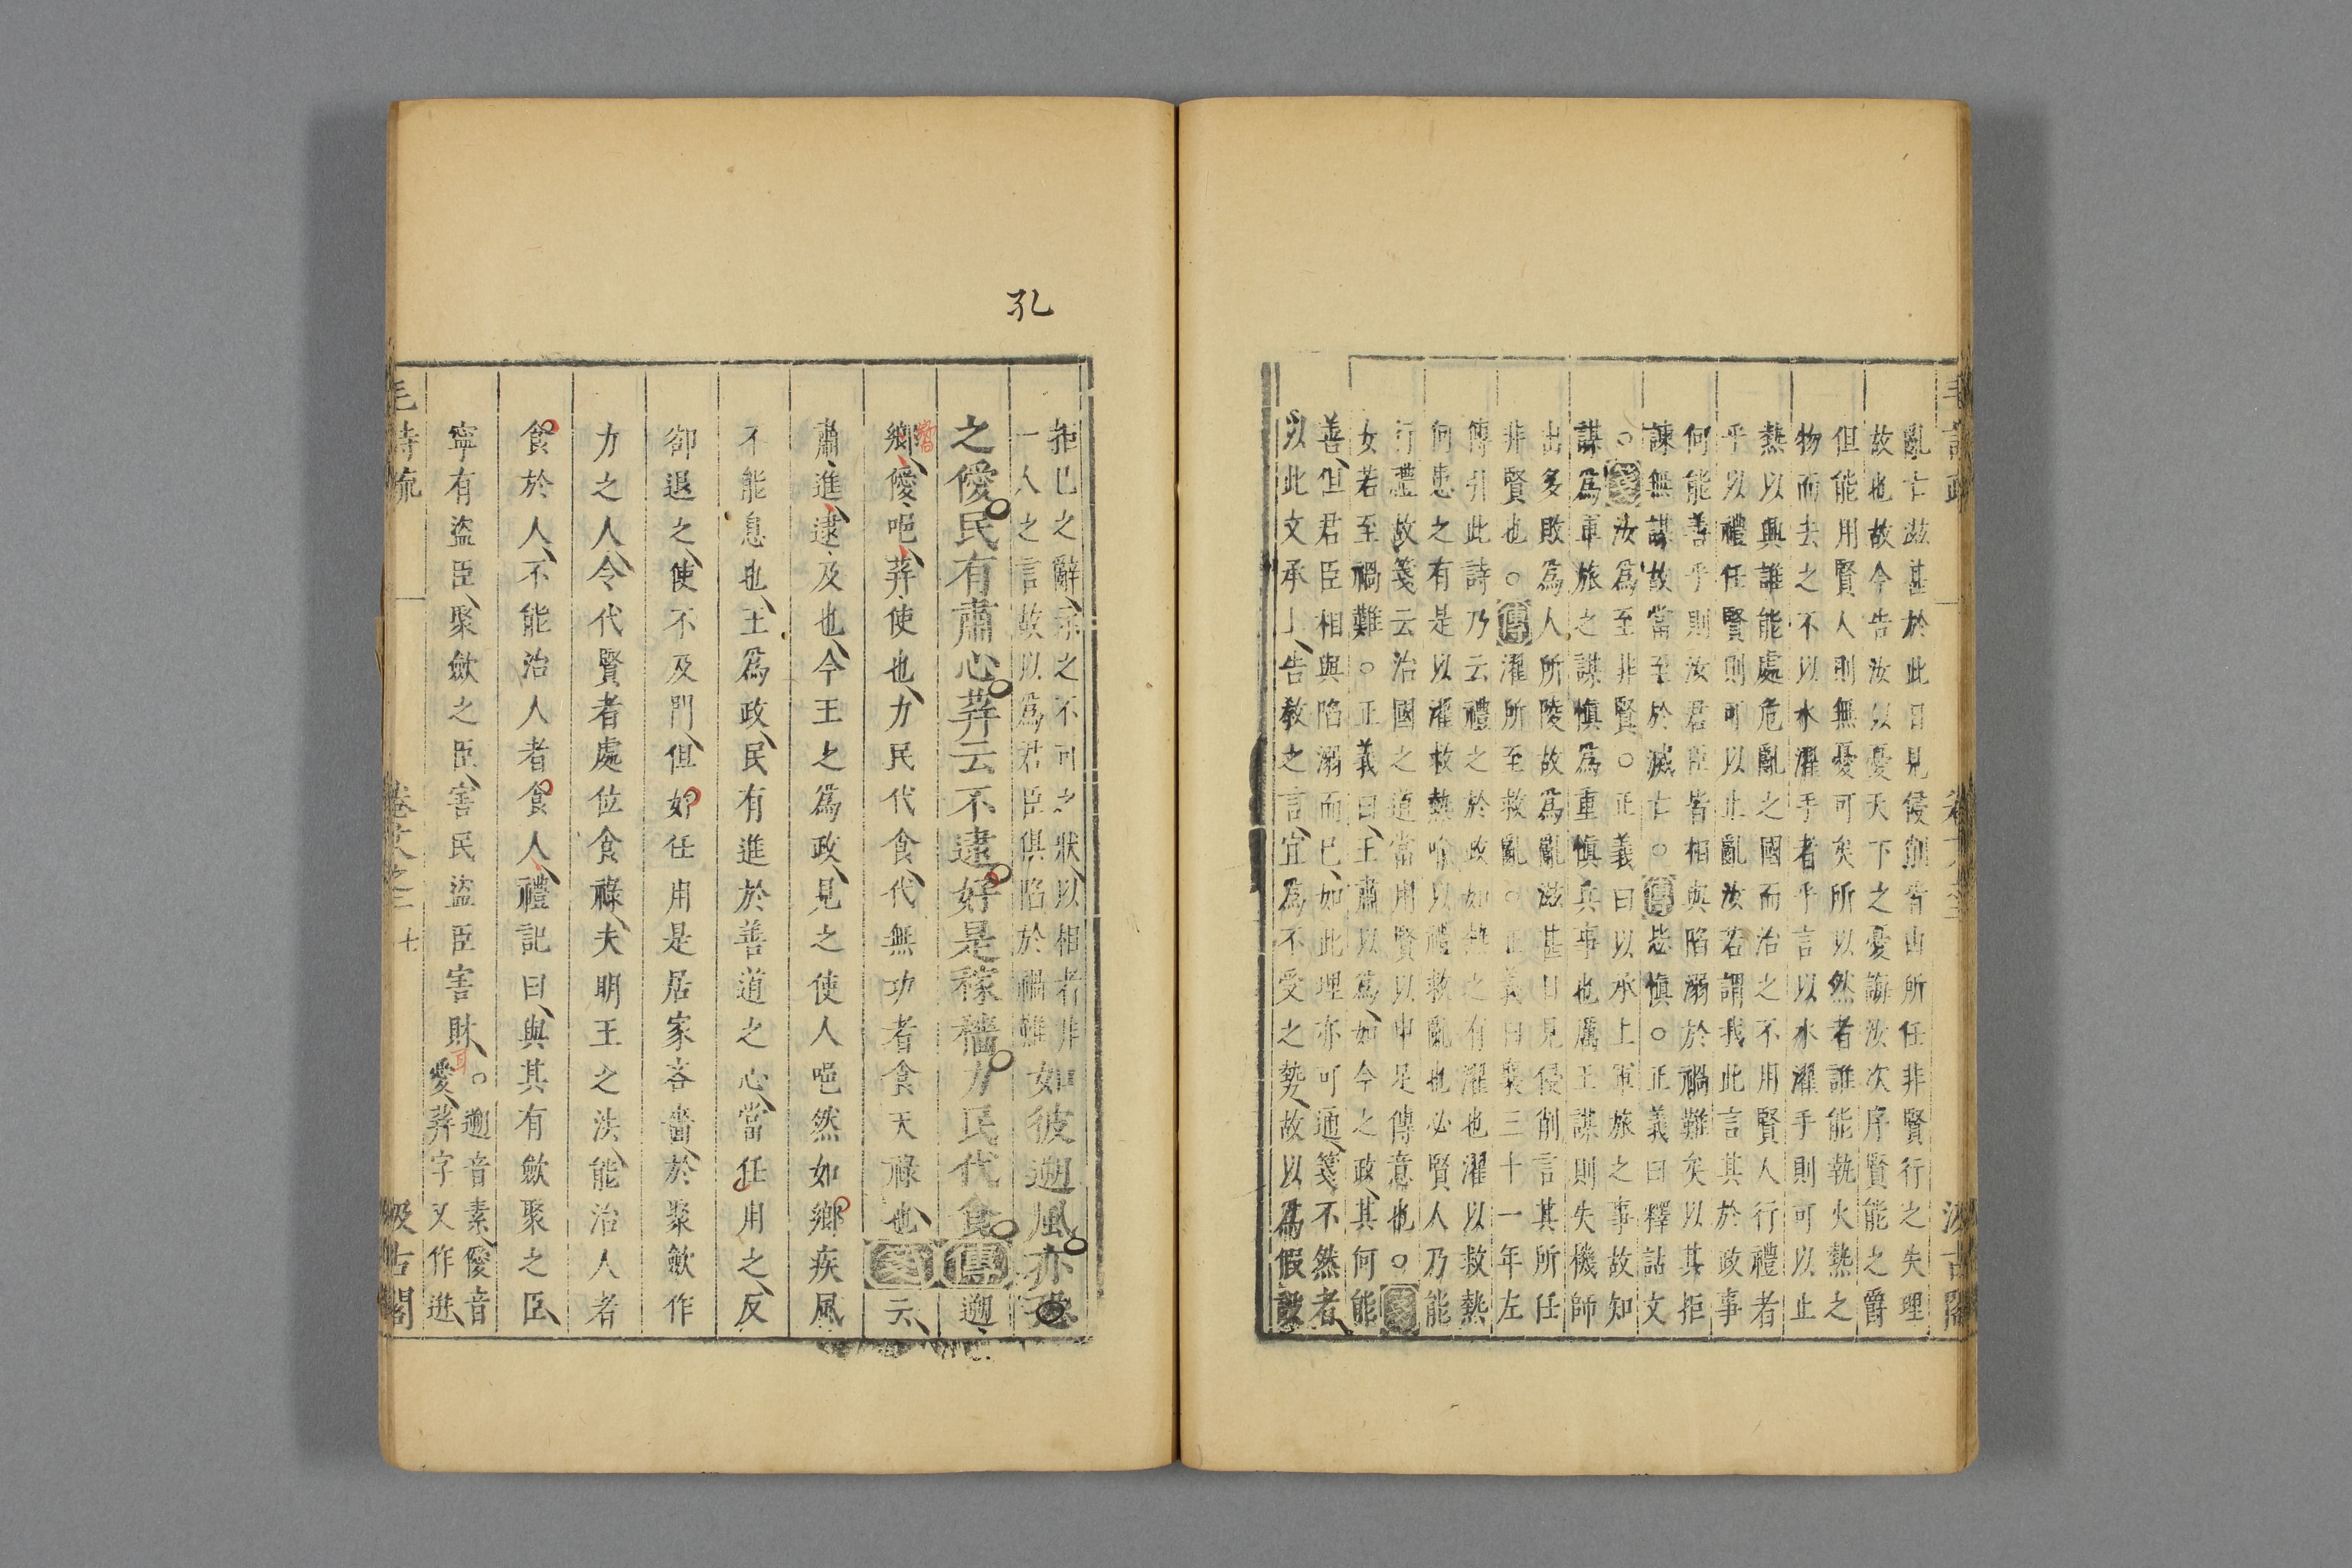 亂亡滋甚於此日見侵削皆由所任非賢行之失理
故也故今告汝以憂天下之憂誨汝次序賢能之爵
但能用賢人則無憂可矣所以然者誰能執火熱之
物而去之不以水濯手者乎言以水濯手則可以止
熱以興誰能處危亂之國而治之不用賢人行禮者
乎以禮任賢則可以止亂汝若謂我此言其於政事
何能善乎則汝君臣皆相與陷溺於禍難矣以其拒
諫無謀故當至於滅亡○傳毖慎○正義曰釋詁文
○箋汝為至非賢○正義曰以承上軍旅之事故知
謀為軍旅之謀慎為重慎兵事也厲王謀則失機師
出多敗為人所陵故為亂滋甚日見侵削言其所任
非賢也○傳濯所至救亂○正義曰襄三十一年左
傳引此詩乃云禮之於政如熱之有濯也濯以救熱
何患之有是以濯救熱喻以禮救亂也必賢人乃能
行禮故箋云治國之道當用賢以申是傳意也○箋
女若至禍難○正義曰王肅以為如今之政其何能
善但君臣相與陷溺而已如此理亦可通箋不然者
以此文承上告教之言宜為不受之勢故以為假設
毛詩疏 汲古閣
孔
拒已之辭示之不可之狀以相者非
一人之言故以為君臣俱陷於禍難
如彼遡風亦孔
之僾民有肅心荓云不逮好是稼穡力民代食傳遡
鄉僾唈荓使也力民代食代無功者食天祿也箋云
嚮
肅進逮及也今王之為政見之使人唈然如鄉疾風
不能息也王為政民有進於善道之心當任用之反
卻退之使不及門但好任用是居家吝嗇於聚斂作
力之人令代賢者處位食祿夫明王之法能治人者
食於人不能治人者食人禮記曰與其有斂聚之臣
寧有盜臣聚斂之臣害民盜臣害財
耳
○遡音素僾音
愛荓字又作迸
毛詩疏 卷十八之二 七 汲古閣